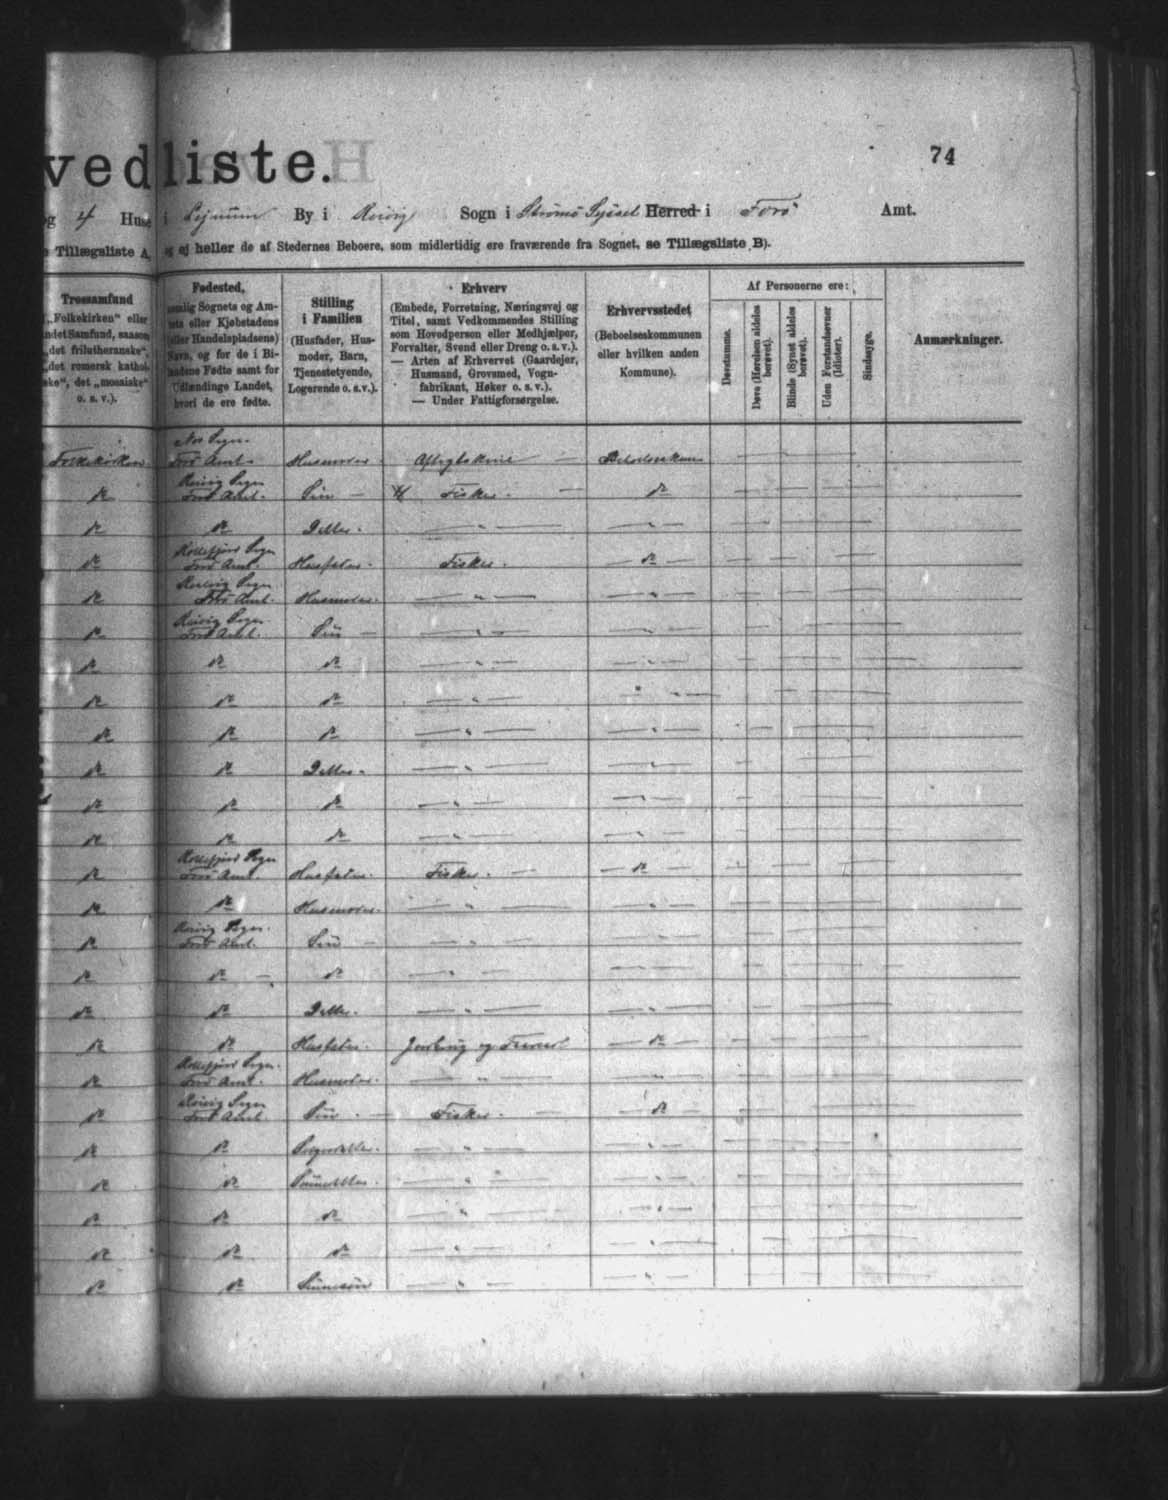 vedliste.
74
og 4 Huse i Lejnum By i Qvivig Sogn i Strømø Syssel Herred i Færø Amt.
Tillægsliste A, og ej heller de af Stedernes Beboere, som midlertidig ere fraværende fra Sognet, se Tillægsliste B).
Trossamfund
(„Folkekirken“ eller
andet Samfund, saasom
„det frilutheranske“,
„det romersk kathol-
ske“, det „mosaiske“
o. s. v.).
Fødested,
nemlig Sognets og Am-
tets eller Kjøbstadens
(eller Handelspladsens)
Navn, og for de i Bi-
landene Fødte samt for
Udlændinge Landet,
hvori de ere fødte.
Stilling
i Familien
(Husfader, Hus-
moder, Barn,
Tjenestetyende,
Logerende o. s.v.).
Erhverv
(Embede, Forretning, Næringsvej og
Titel, samt Vedkommendes Stilling
som Hovedperson eller Medhjælper,
Forvalter, Svend eller Dreng o. s. v.).
— Arten af Erhvervet (Gaardejer,
Husmand, Grovsmed, Vogn-
fabrikant, Høker o. s. v.).
— Under Fattigforsørgelse.
Erhvervsstedet
(Beboelseskommunen
eller hvilken anden
Kommune).
Af Personerne ere:
Døvstumme.
Døve (Hørelsen aldeles
berøvet).
Blinde (Synet aldeles
berøvet).
Uden Forstandsevner
(Idioter).
Sindssyge.
Anmærkninger.
Folkekirken Nos Sogn. Færø Amt. Husmoder. Aftægtskone
do Qvivig Sogn Færø Amt. Søn — Fisker. — do
do do Datter. — " —
do Kollefjord Sogn Færø Amt. Husfader. Fisker. — do —
do Sogn Færø Amt. Husmoder. — " —
do Qvivig Sogn Færø Amt. Søn — — " —
do do do — " —
do do do — " —
do do do — " —
do do Datter. — " —
do do do — " —
do do do — " —
do Kollefjord Sogn Færø Amt. Husfader. Fisker. — — do —
do do Husmoder. — " —
do Qvivig Sogn. Færø Amt. Søn — — " —
do do — do — " —
do do Datter. — " —
do do Husfader. Jordbrug og — do —
do Kollefjord Sogn. Færø Amt. Husmoder. — " —
do Qvivig Sogn Færø Amt. Søn. — Fisker. — — do
do do — " —
do do — " —
do do do — " —
do do do — " —
do do Sønnesøn — " —